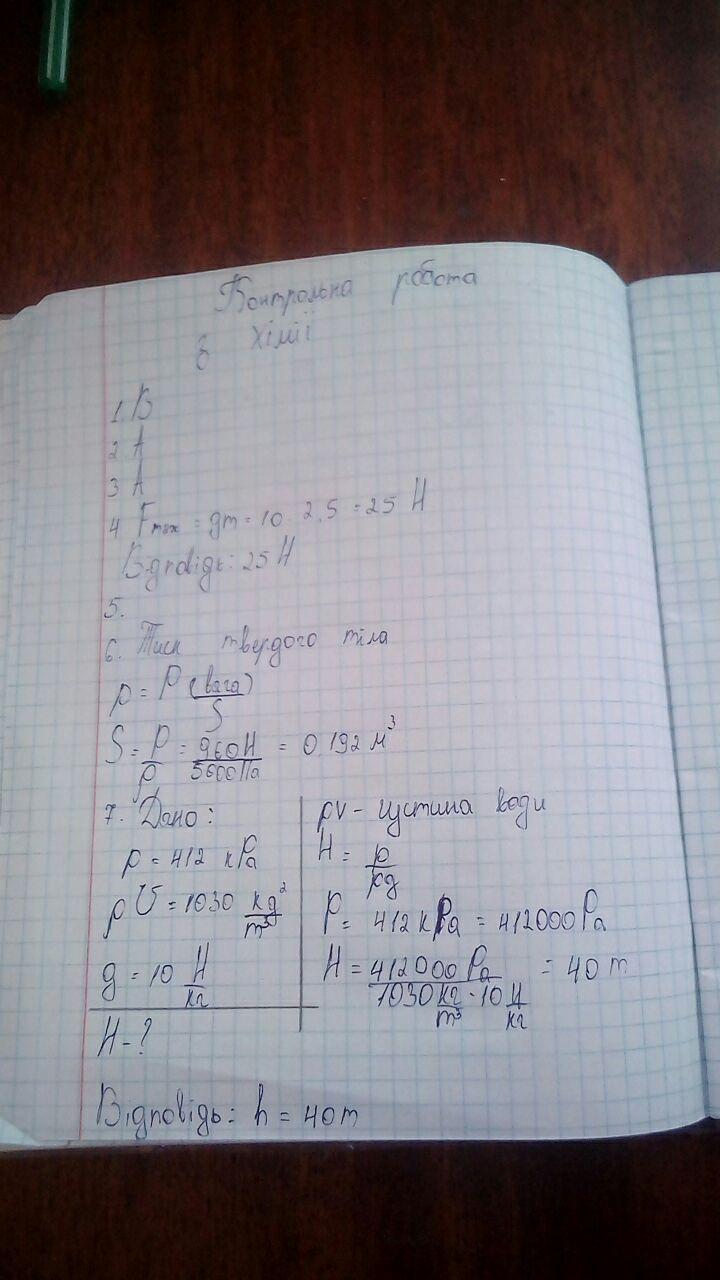 Контрольна робота
з хімії
1. В
2 А
3 А
4 Fmax = gm = 10 · 2,5 = 25 Н
Відповідь: 25 Н
5.
6. Тиск твердого тіла
p = P (вага) / S
S = P / p = 960Н / 5600Па = 0,192 м³
7. Дано:
p = 412 кPa
ρv = 1030 кg² / m³
g = 10 Н / кг
H - ?
ρv - густина води
H = p / ρg
P = 412 кPa = 412000 Pa
H = 412000 Pa / 1030 кг / m³ · 10 Н / кг = 40 m
Відповідь: h = 40 m